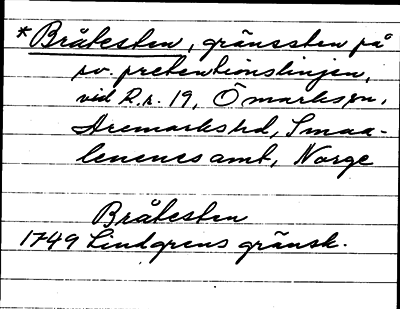 *Bråtesten, gränssten på
sv. pretentionslinjen,
vid R.r. 19, Ö marks sn,
Aremarks hd, Smaa-
lenenes amt, Norge
Bråtesten
1749 Lindgrens gränsk.